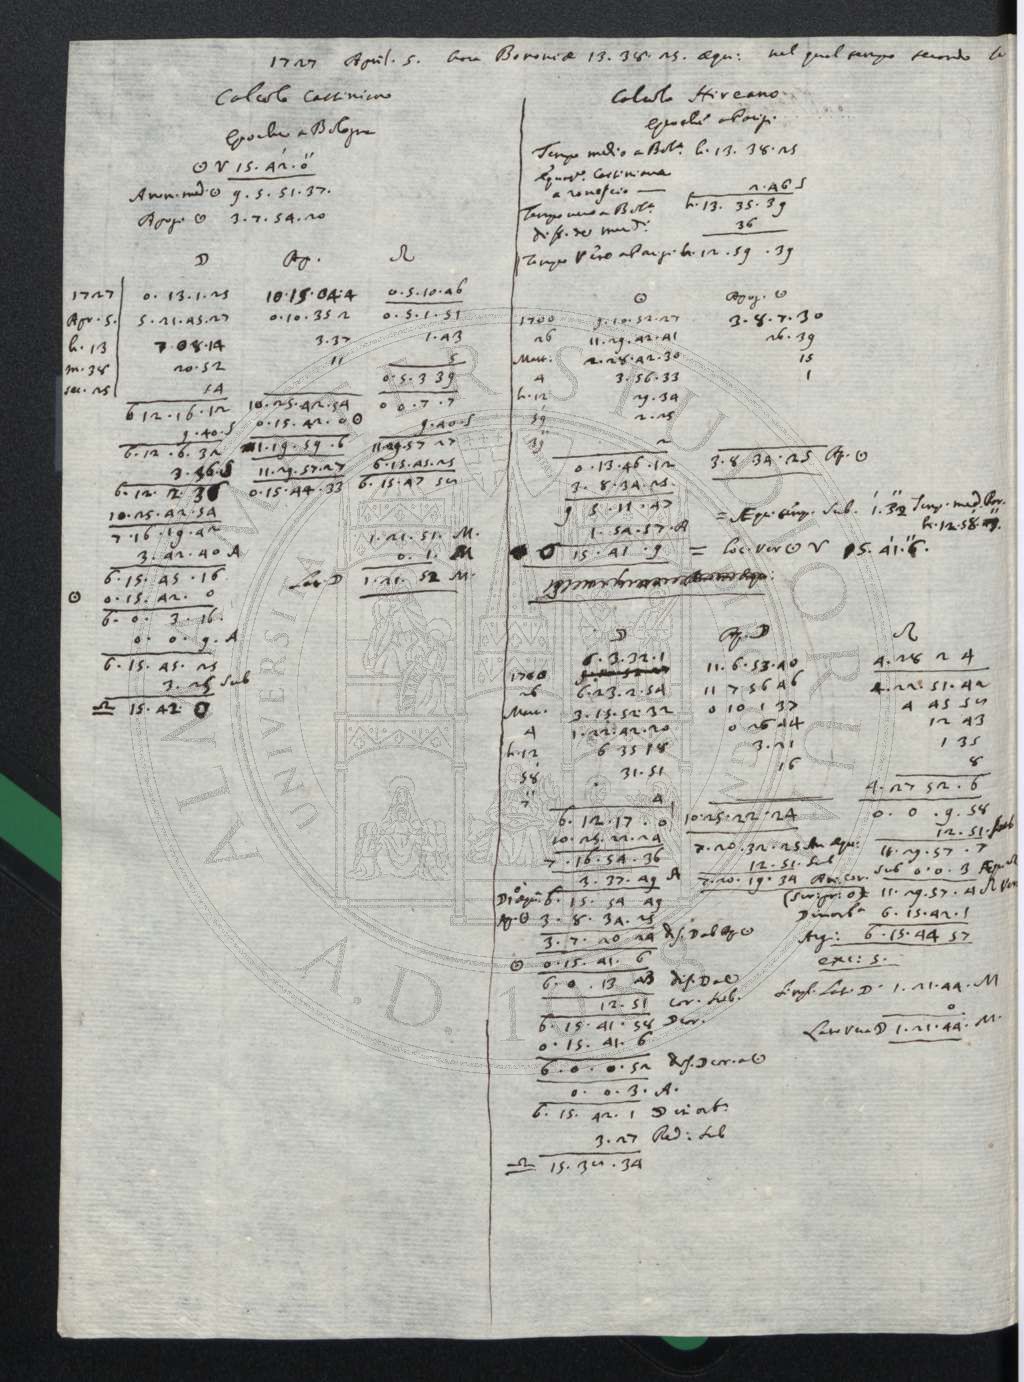 1727 April. 5. hora Bononiæ 13. 38. 25. æqu: nel qual tempo secondo
Calcolo Cassiniano
Epoche a Bologna
☉ ♈ 15. 42. 0
Anom. med. ☉ 9. 5. 51. 37.
Apog. ☉ 3. 7. 54. 20
☽ Ap. ☊
1727 0. 13. 1. 25 10. 15. 04. 4 0. 5. 10. 46
Apr. 5. 5. 21. 45. 27 0. 10. 35 2 0. 5. 1. 51
h. 13 7. 08. 14 3. 37 1. 43
m. 38 20. 52 11 5
sec. 25 14 0. 5. 3 39
6 12. 16. 12 10. 25. 42. 54 0 0. 7. 7
9. 40. S 0. 15. 42. 0 ☉ 9. 40. S
6. 12. 6. 32 11. 19. 59. 6 11. 29 57 27
3. 56. S 11. 29. 57. 27 6. 15. 45. 25
6. 12. 2 36 0. 15. 44. 33 6. 15. 47 52
10. 25. 42. 54
7. 16. 19. 42 1. 21. 51. M.
3. 42. 40 A 0. 1. M
6. 15. 45. 16 Lat. ☽ 1. 21. 52 M.
☉ 0. 15. 42. 0
6. 0. 3. 16.
0. 0. 9. A
6. 15. 45. 25
3. 25 Sub
♎ 15. 42 0
Calcolo Streeano
Epoche a Parigi
Tempo medio a Bol.ª h. 13. 38. 25
Equaz.e Cassiniana
a rovescio — 2. 46 S
Tempo vero a Bol.ª h. 13. 35. 39
diff. de' merid: 36
Tempo vero a Parigi h. 12. 59. 39
☉ Apog. ☉
1700 9. 10. 52. 27 3. 8. 7. 30
26 11. 29. 42. 41 26. 39
Mart. 2. 28. 42. 30 15
4 3. 56. 33 1
h. 12 29. 34
59 2. 25
39 2
0. 13. 46. 12 3. 8 34. 25 Ap. ☉
3. 8. 34. 25.
9 5. 11. 47 = Æqu. temp. sub. 1. 32 Temp. med. Par.
1. 54. 57. A h. 12. 58. 7.
0 15. 41. 9 = loc. ver ☉ ♈ 15. 41. 6.
☽ Ap. ☽ ☊
6. 3. 32. 1
1700 11. 6. 53. 40 4. 28 2 4
26 6. 23. 2. 54 11 7 56 46 4. 22. 51. 42
Mar. 3. 15. 52. 32 0 10 1 37 4 45 52
4 1. 22. 42. 20 0 26 44 12 43
h. 12 6 35 18 3. 21 1 35
58 31. 51 16 8
7 4 4. 27 52. 6
6. 12. 17. 0 10. 25. 22. 24 0. 0. 9. 58
10. 25. 22. 24 7. 20. 32. 25 An. æqu: 12. 51. Sub
7. 16. 54. 36 12. 51. Sub 11. 29. 57. 7
3. 37. 49 A 7. 20. 19. 34 An. cor. Sub 0. 0. 3 Æqu. ☊
6. 15. 54 49 11. 29. 57. 4 ☊ Ver
Ap. ☉ 3. 8. 34. 25 ☽ in orb.ª 6. 15. 42. 1
3. 7. 20 24 dif. ☽ ab Ap ☉ Arg: 6. 15. 44 57
☉ 0. 15. 41. 6 exc: S.
6. 0. 13 43 dif. ☽ a ☉
12. 51 cor. sub. Simpl. Lat. ☽ 1. 21. 44. M
6. 15. 41. 58 ☽ cor. 0
0. 15. 41. 6 Lat. vera ☽ 1. 21. 44. M.
6. 0. 0. 52 dif. ☽ cor. a ☉
0. 0. 3. A.
6. 15. 42. 1 ☽ in orb.ª
3. 27 Red: sub
♎ 15. 38. 34
ALMA MATER STUDIORUM
UNIVERSITÀ DI BOLOGNA
A.D. 1088